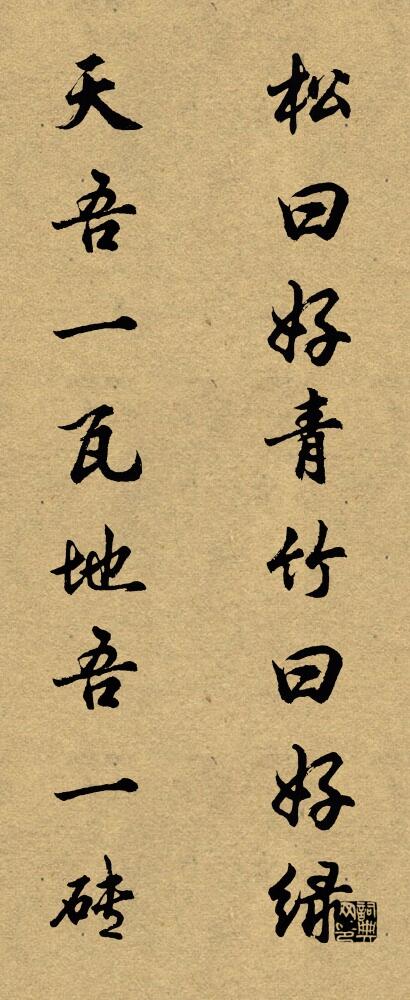 松曰好青竹曰好绣
天吾一瓦地吾一砖
詞典网印